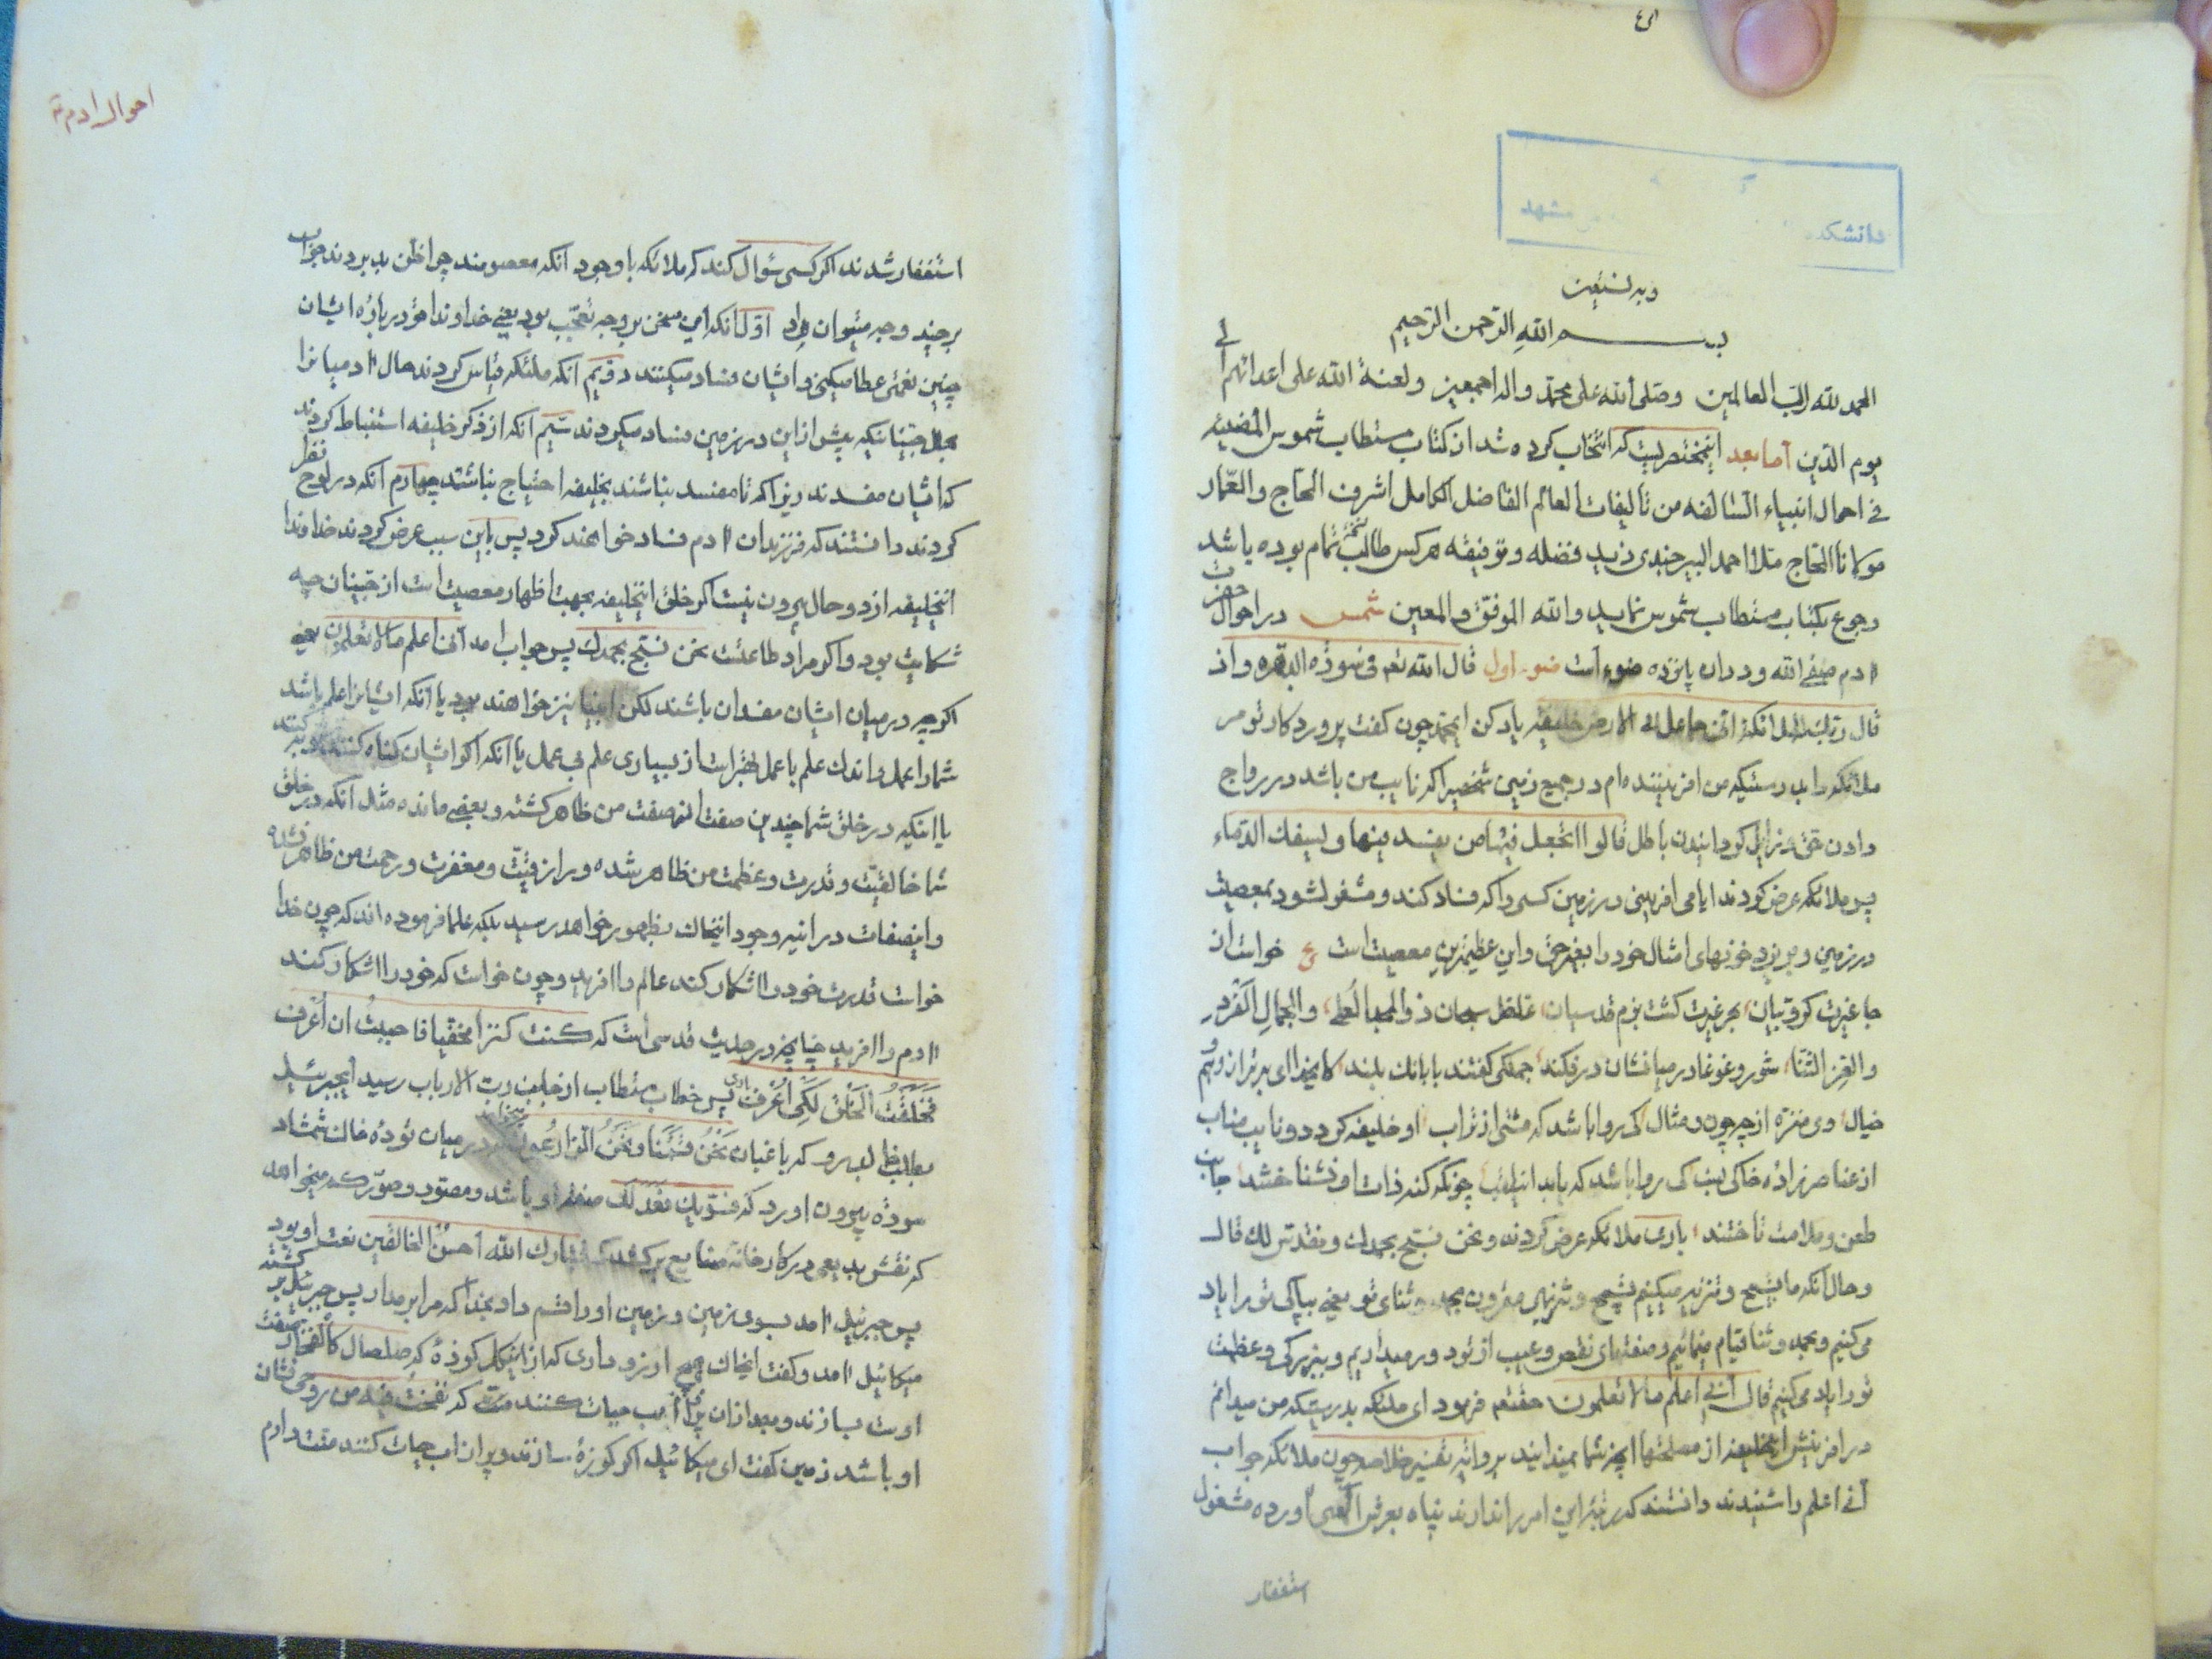 دانشکده مشهد
وبه نستعین
بسم الله الرحمن الرحیم
الحمد لله رب العالمین وصلی الله علی محمد واله اجمعین ولعنة الله علی اعدائهم الی
یوم الدین اما بعد اینمختصریست که انتخاب کرده شد از کتاب مستطاب شموس المضیئه
فی احوال انبیاء السالفه من تالیفات العالم الفاضل الکامل اشرف الحاج والعمار
مولانا الحاج ملا احمد البیرجندی زید فضله وتوفیقه هر کس طالب تمام بوده باشد
رجوع بکتاب مستطاب شموس نماید والله الموفق والمعین شمس در احوال حضرت
ادم صفی الله ودران پانزده ضوء است ضوء اول قال الله تعم فی سوره البقره واذ
قال ربک للملائکة انی جاعل فی الارض خلیفه یاد کن ایمحمد چون کفت پروردکار تو مر
ملائکه را بدرستیکه من افریننده ام در جمیع زمین شخصیرا که نایب من باشد در رواج
دادن حق وزایل کردانیدن باطل قالوا اتجعل فیها من یفسد فیها ویسفک الدماء
پس ملائکه عرض کردند ایا می افرینی در زمین کسی را که فساد کند ومشغول شود بمعصیت
در زمین وبریزد خونهای امثال خود را بغیر حق واین عظیمترین معصیت است ع خواست از
جا غیرت کروبیان بحر غیرت کشت بزم قدسیان غلغل سبحان ذوالمجد العلی والجمال الفرد
والعز الثنا شور وغوغا در میانشان درفکند جملکی کفتند با بانک بلند کایخدا ای برتر از وهم و
خیال وی منزه از چه وچون ومثال کی روا باشد که مشتی از تراب او خلیفه کردد ونایب مناب
از عناصر زاده خاکی نسب کی روا باشد که یابد این لقب چونکه کنه ذات او نشناختند جانب
طعن وملامت تاختند باری ملائکه عرض کردند ونحن نسبح بحمدک ونقدس لک قال
وحال آنکه ما تسبیح وتنزیه میکنیم تسبیح وتنزیهی مقرون بحمد وثنای تو یعنی بپاکی تو را یاد
می کنیم وبحمد وثنا قیام مینمائیم وصفتهای نقص وعیب از تو دور میداریم وببزرکی وعظمت
تو را یاد می کنیم قال انی اعلم ما لا تعلمون حقتعم فرمود ای ملئکه بدرستیکه من میدانم
در افرینش اینخلیفه از مصلحتها انچه شما نمیدانید بروایه تفسیر خلاصه چون ملائکه جواب
انی اعلم را شنیدند دانستند که رتبه این امر را ندارند پناه بعرش الهی اورده مشغول
استغفار
احوال ادم ع
استغفار شدند اکر کسی سئوال کند که ملائکه با وجود انکه معصومند چرا ظن بد بردند جواب
بر چند وجه میتوان داد اول انکه این سخن بر وجه تعجب بود یعنی خداوندا تو در باره ایشان
چنین نعمتی عطا میکنی وایشان فساد میکنند دویم انکه ملئکه قیاس کردند حال ادمیانرا
بحال جنیانیکه پیش از این در زمین فساد میکردند سیم انکه از ذکر خلیفه استنباط کردند
که ایشان مفسدند زیرا که تا مفسد نباشند بخلیفه احتیاج نباشد چهارم انکه در لوح نظر
کردند دانستند که فرزندان ادم فساد خواهند کرد پس باین سبب عرض کردند خداوندا
اینخلیفه از دو حال بیرون نیست اکر خلق اینخلیفه بجهت اظهار معصیت است از جنیان چه
شکایت بود واکر مراد طاعتست نحن نسبح بحمدک پس جواب امد انی اعلم ما لا تعلمون یعنی
اکر چه در میان ایشان مفسدان باشند لکن انبیا نیز خواهند بود یا انکه ایشانرا علم باشد
شما را عمل واندک علم با عمل بهتر است از بسیاری علم بی عمل یا انکه اکر ایشان کناه کنند توبه کنند
یا اینکه در خلق شما چندین صفت از صفت من ظاهر کشته وبعضی مانده مثل انکه در خلق
شما خالقیت وقدرت وعظمت من ظاهر شده ورازقیت ومغفرت ورحمت من ظاهر نشده
واینصفات در اینه وجود اینخاک بظهور خواهد رسید بلکه علما فرموده اند که چون خدا
خواست قدرت خود را اشکار کند عالم را افرید وچون خواست که خود را اشکار کند
ادم را افرید چنانچه در حدیث قدسی است که کنت کنزا مخفیا فاحببت ان اعرف
فخلقت الخلق لکی اعرف پس خطاب مستطاب از جانب رب الارباب رسید ایجبرئیل
بطلب برو که باغبان نحن قسمنا ونحن الزارعون در میان توده خاک شمشاد
سوده بیرون اورد که فسویک فعدلک صفت او باشد ومصور وصورکم میخواهد
که نقش بدیعی در کارخانه صنایع برکشد که تبارک الله احسن الخالقین نعت او بود
پس جبرئیل امد بسوی زمین وزمین او را قسم داد بخدا که مرا بر مدار پس جبرئیل برکشته
میکائیل امد وکفت ایخاک هیچ ارزو داری که از اینکل کوزهٔ که صلصال کالفخار صفت
اوست بسازند وبعد ازان پر از اب حیات کنند که نفخت فیه من روحی نشان
او باشد زمین کفت ای میکائیل اکر کوزهٔ سازند وپر از اب حیات کنند منت دارم